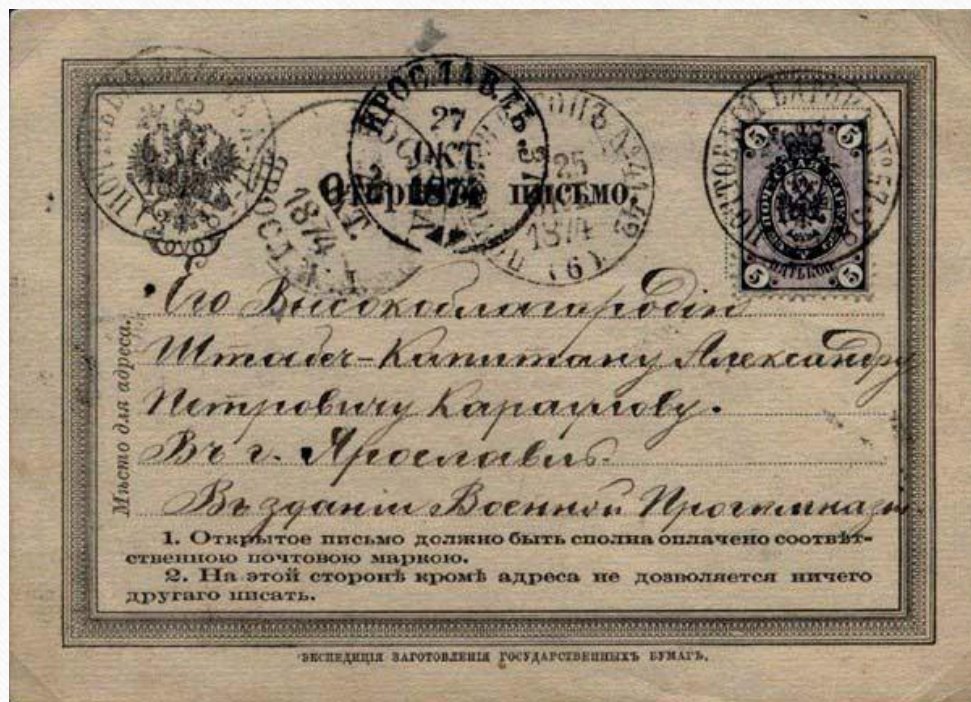 ЯРОСЛАВЛЬ
27
ОКТ.
1874
25
1874
(6)
1874
Открытое письмо.
ПОЧТОВЫЙ ВАГОНЪ
5 5
5 5
ПЯТЬ КОП
Мѣсто для адреса.
Его Высокоблагородію
Штабсъ-Капитану Александру
Петровичу Караулову.
Въ г. Ярославль.
Въ зданіи Военной Прогимназіи.
1. Открытое письмо должно быть сполна оплачено соотвѣт-
ственною почтовою маркою.
2. На этой сторонѣ кромѣ адреса не дозволяется ничего
другаго писать.
ЭКСПЕДИЦІЯ ЗАГОТОВЛЕНІЯ ГОСУДАРСТВЕННЫХЪ БУМАГЪ.